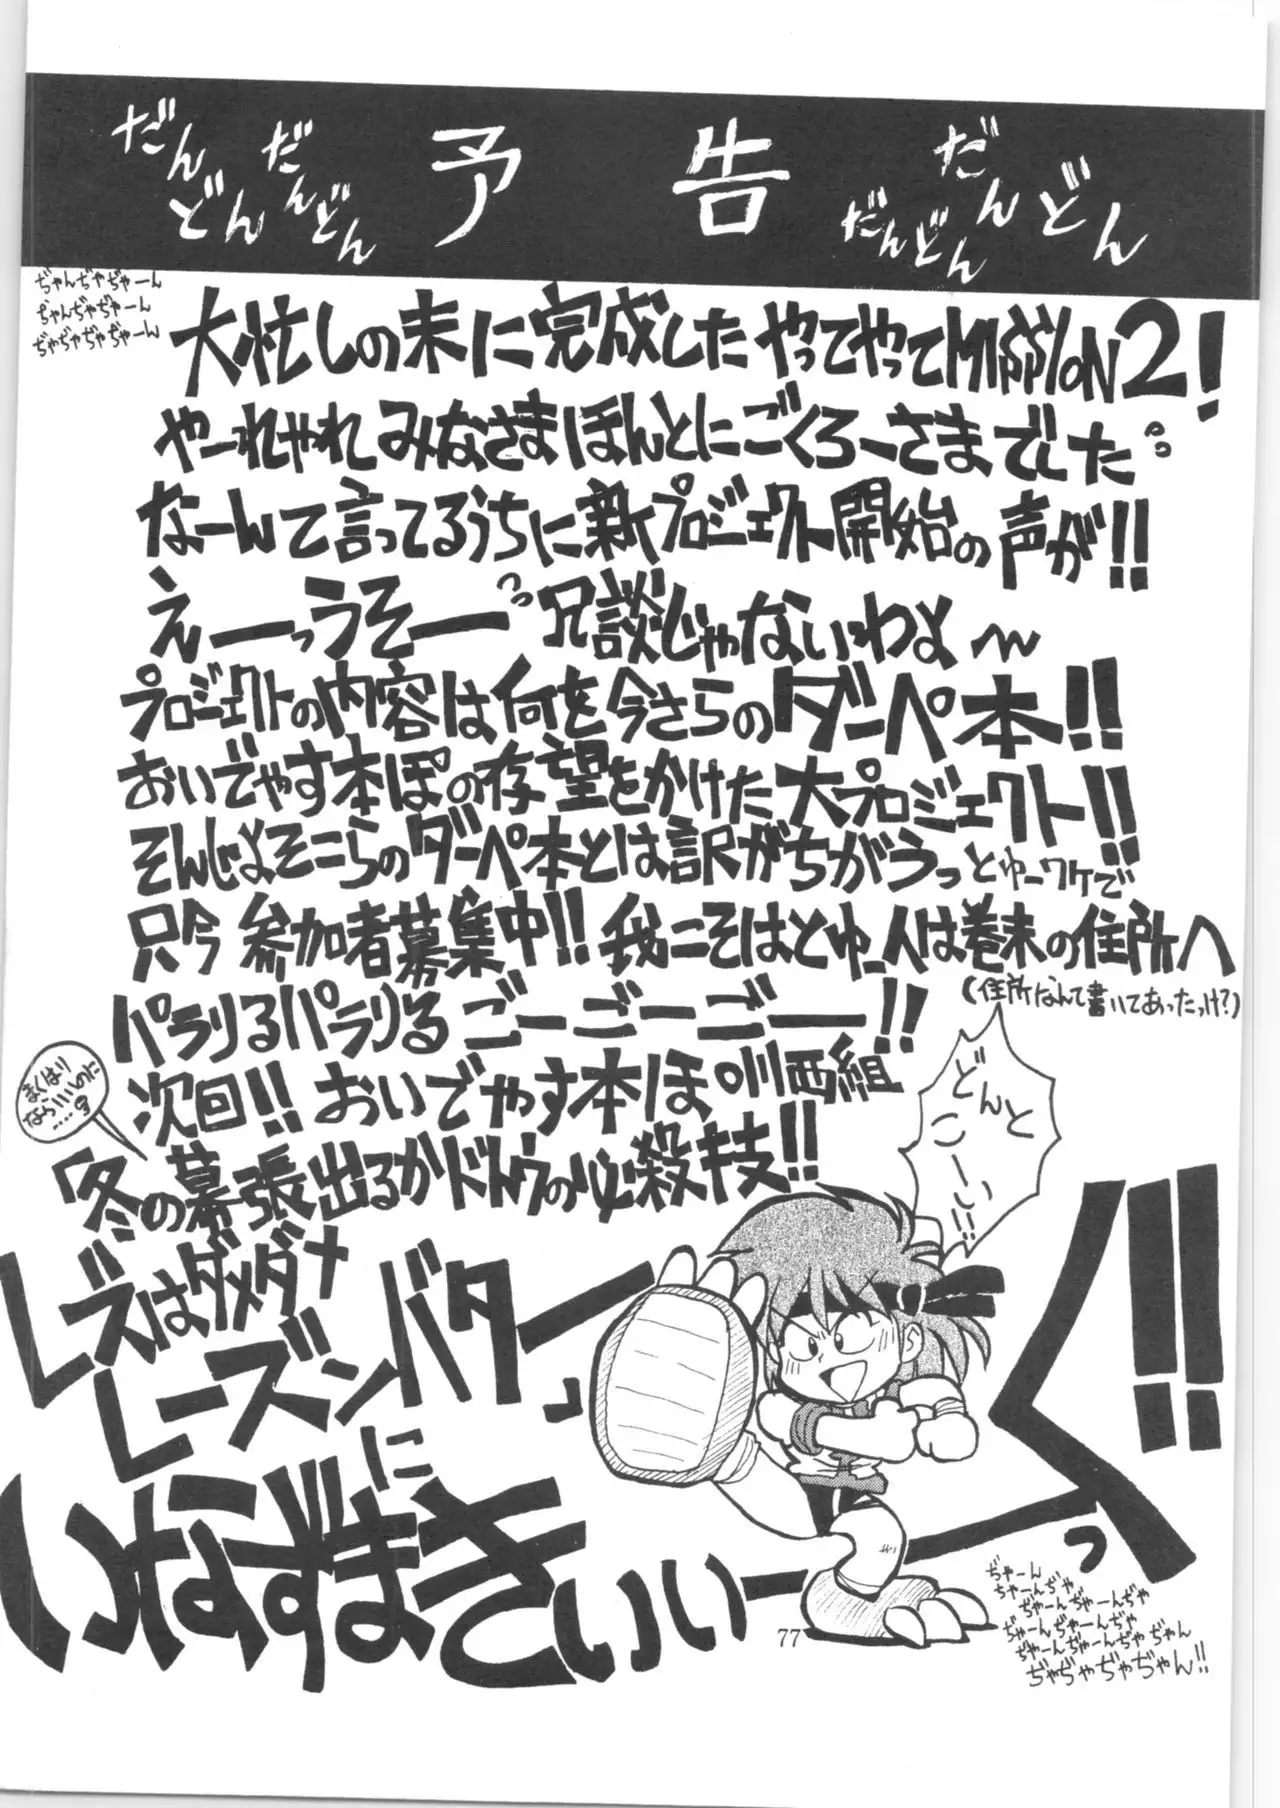 だんどん
だんどん
予告
だんどん
だんどん
ぢゃんぢゃぢゃーん
ぢゃんぢゃぢゃーん
ぢゃぢゃぢゃぢゃーん
大忙しの末に完成したやってやってMISSION2!
やーれやれみなさまほんとにごくろーさまでした
なーんて言ってるうちに新プロジェクト開始の声が!!
えーーっうそーー 冗談じゃないわよ〜
プロジェクトの内容は何を今さらのダーペ本!!
おいでやす本ぽの存望をかけた大プロジェクト!!
そんじょそこらのダーペ本とは訳がちがうっとゆーワケで
只今参加者募集中!! 我こそはとゆー人は巻末の住所へ
(住所なんて書いてあったっけ?)
パラりるパラりる ごーごーごーー!!
次回!! おいでやす本ぽ 川西組
まくはり
ならいいのに
「冬の幕張出るかドトウの必殺技!!
レズはダメダナ
レーズンバターに
いなずまきいいーっく!!
どんと
こーい!!
77
ぢゃーん
ちゃーんぢゃ
ぢゃーんぢゃーんぢゃ
ぢゃーんぢゃーんぢゃ
ぢゃーんぢゃーんぢゃぢゃん
ぢゃぢゃぢゃぢゃん!!